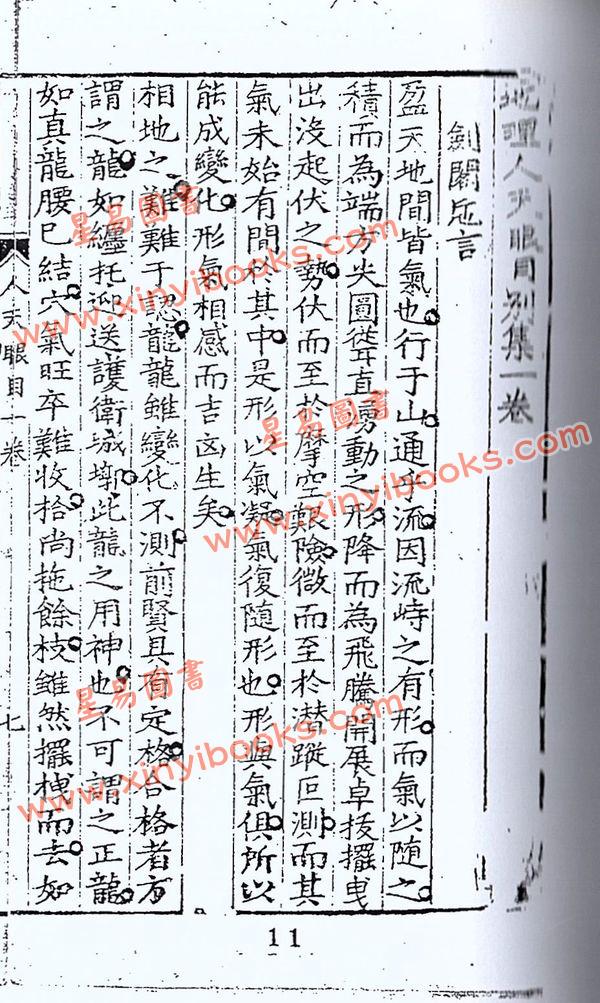 地理人天眼目別集一卷
劍閣巵言
盈天地間皆氣也行于山通乎流因流峙之有形而氣以隨之
積而為端方尖圓聳直湧動之形降而為飛騰開展卓拔擺曳
出沒起伏之勢伏而至於摩空艱險微而至於潛蹤叵測而其
氣未始有間於其中是形以氣凝氣復隨形也形與氣俱所以
能成變化形氣相感而吉凶生矣
相地之難難于認龍龍雖變化不測前賢具有定格合格者方
謂之龍如纏托迎送護衛城塹此龍之用神也不可謂之正龍
如真龍腰已結穴氣旺卒難收拾尚拖餘枝雖然擺拽而去如
人天眼目一卷
七
11
星易圖書
www.xinyibooks.com
星易圖書
www.xinyibooks.com
星易圖書
www.xinyibooks.com